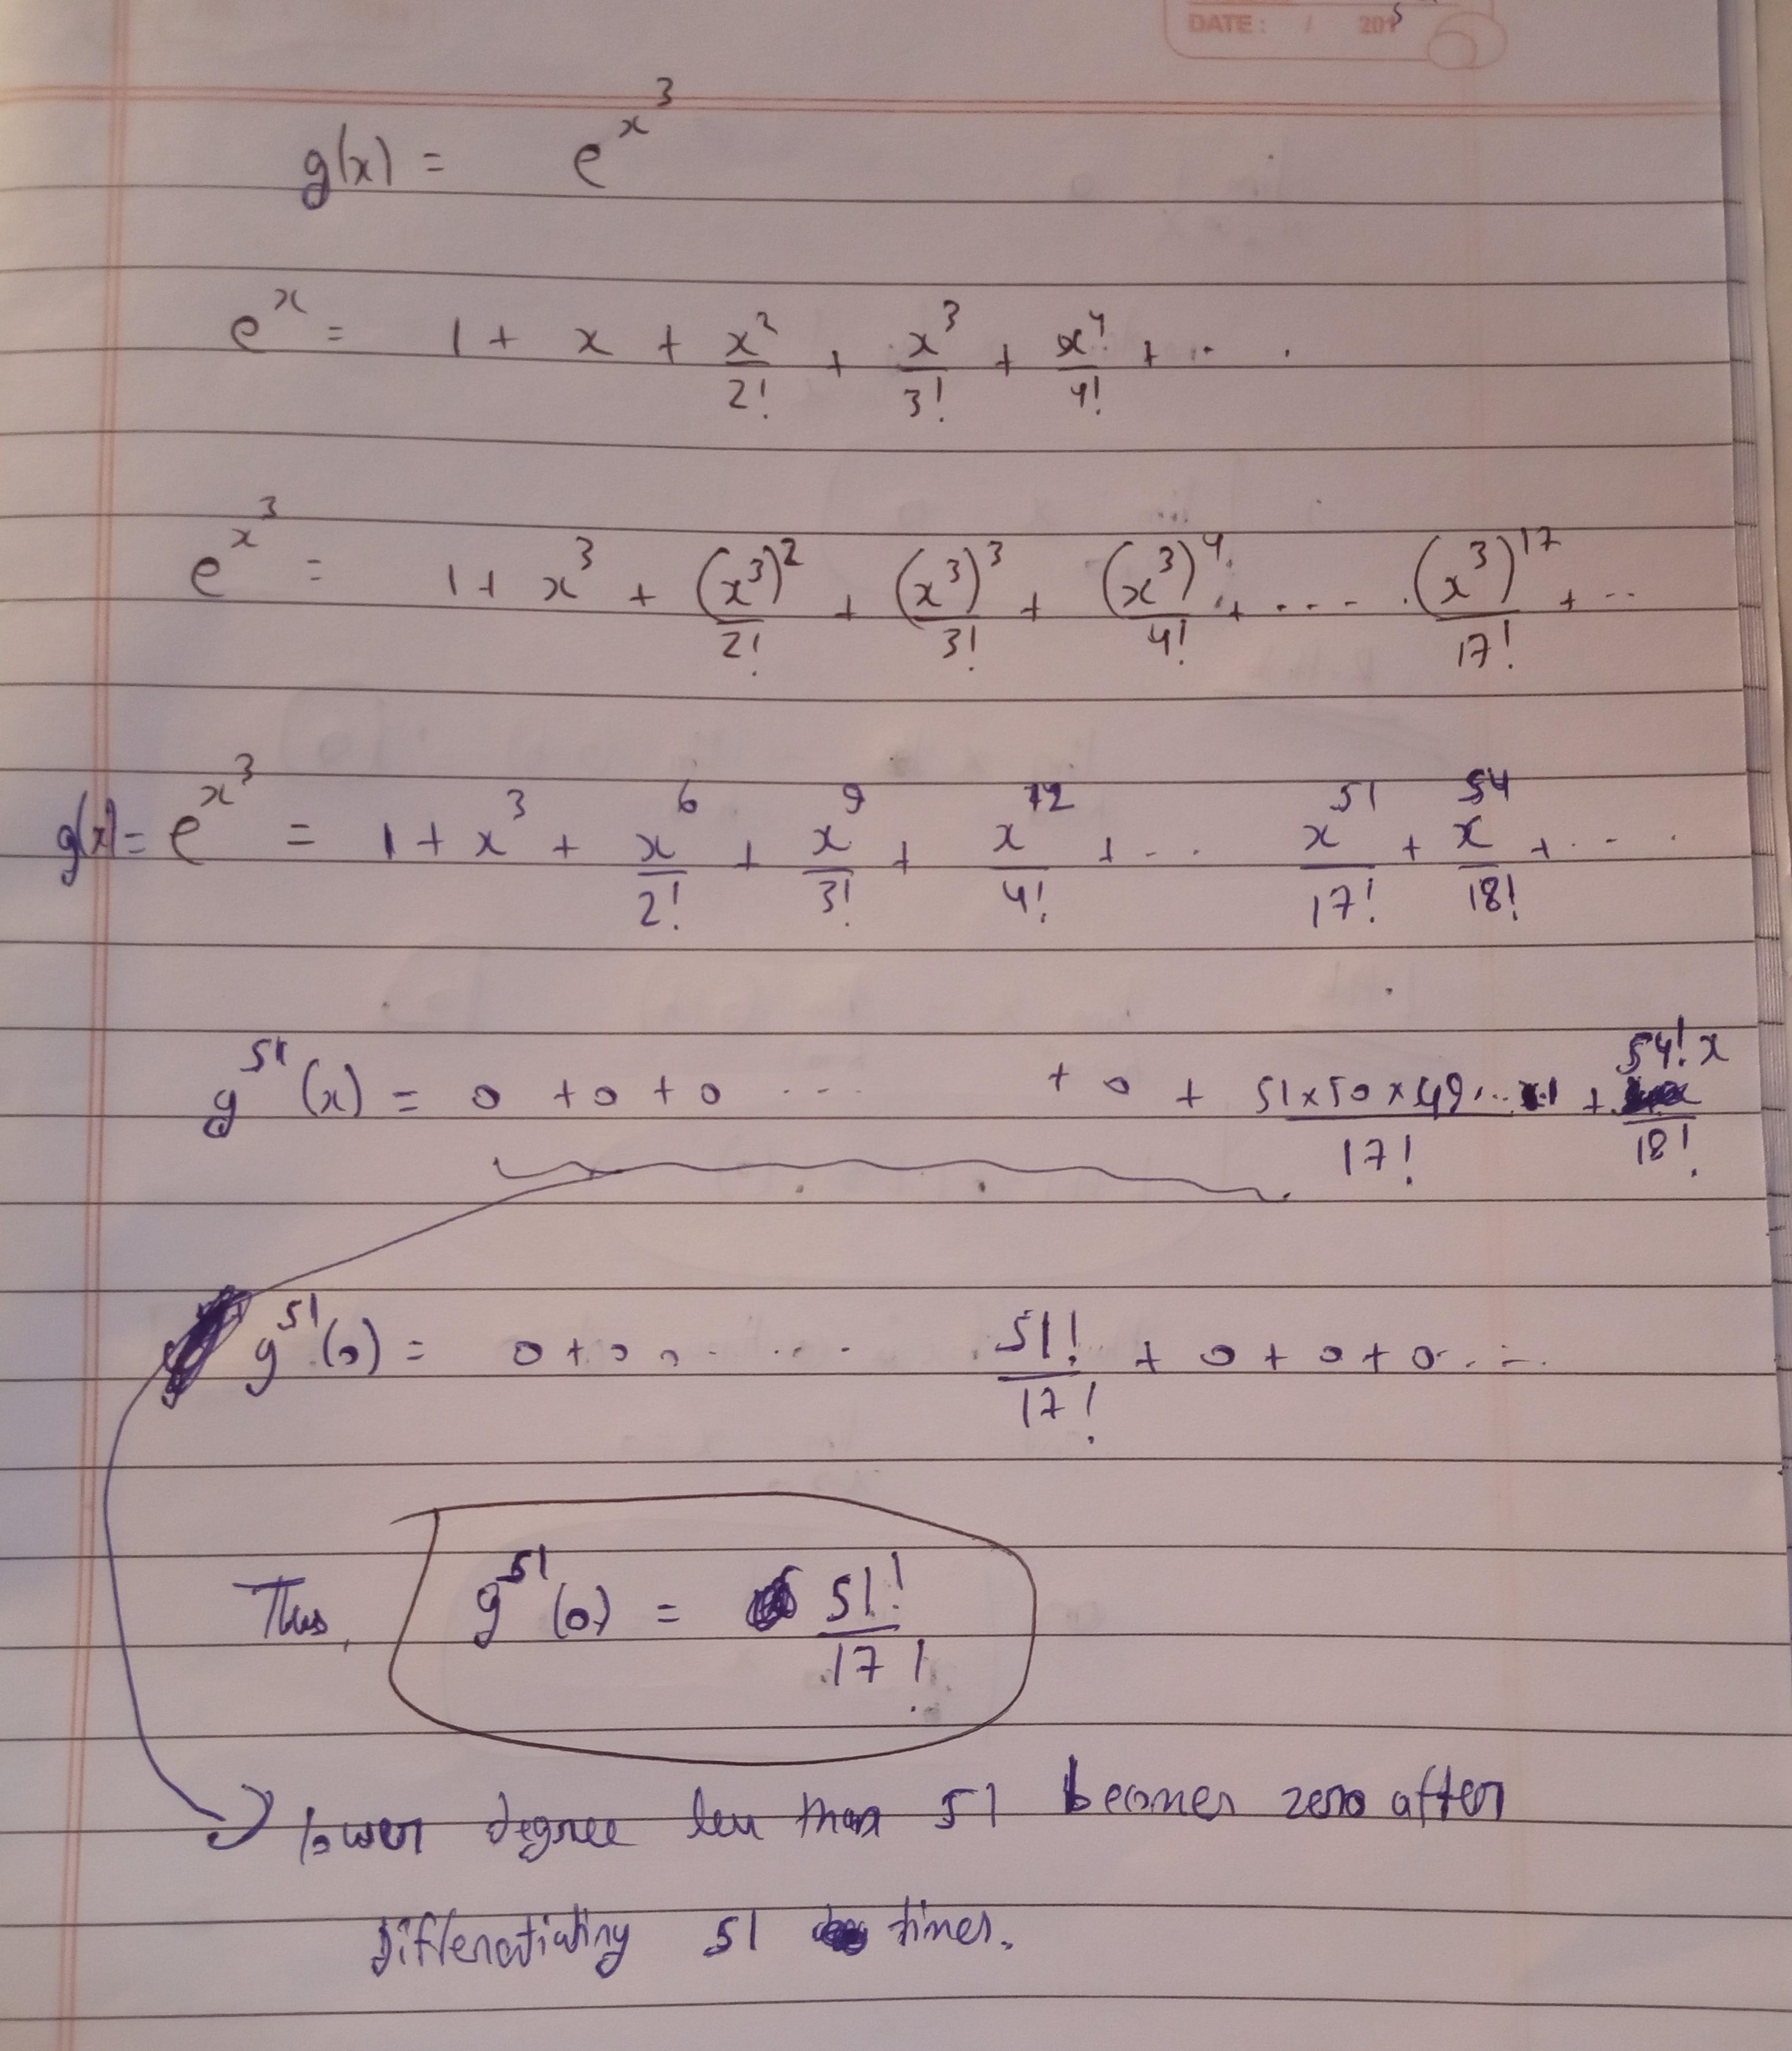 DATE: / 201
g(x) = e^{x^3}
e^x = 1 + x + x^2/2! + x^3/3! + x^4/4! + .. .
e^{x^3} = 1 + x^3 + (x^3)^2/2! + (x^3)^3/3! + (x^3)^4/4! + .... (x^3)^17/17! + ..
g(x) = e^{x^3} = 1 + x^3 + x^6/2! + x^9/3! + x^12/4! + ... x^51/17! + x^54/18! + ...
g^51(x) = 0 + 0 + 0 ... + 0 + 51×50×49...1/17! + 54!x/18!
g^51(0) = 0 + 0 0 ..... 51!/17! + 0 + 0 + 0 ...
Thus, g^51(0) = 51!/17!
lower degree less than 51 becomes zero after
differentiating 51 times.